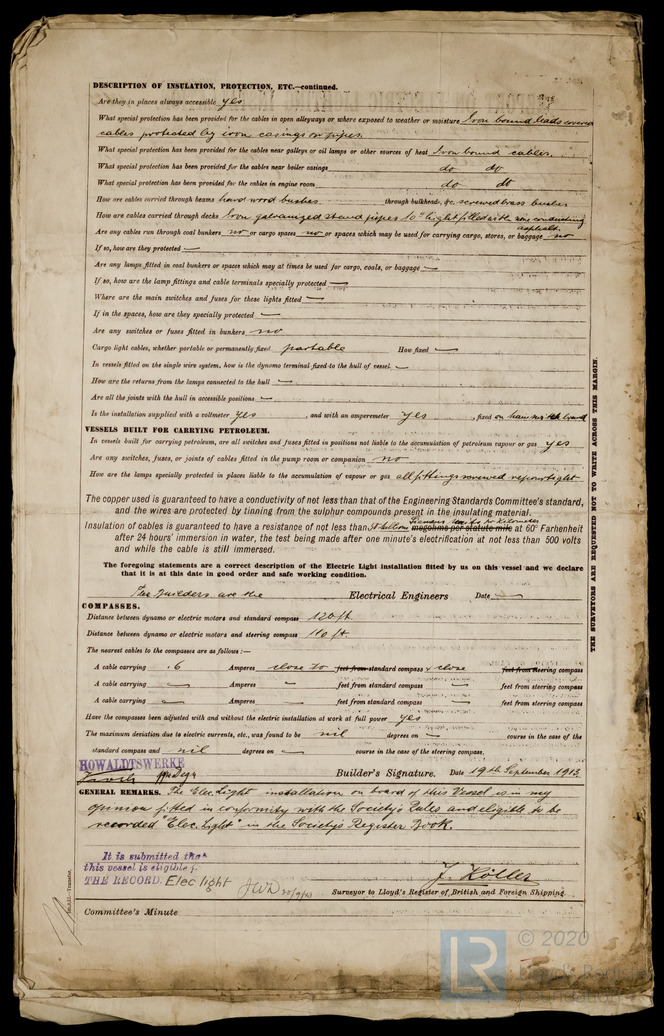 DESCRIPTION OF INSULATION, PROTECTION, ETC.—continued.
Are they in places always accessible yes
What special protection has been provided for the cables in open alleyways or where exposed to weather or moisture Iron bound leads covered
cables protected by iron casings or pipes
What special protection has been provided for the cables near galleys or oil lamps or other sources of heat Iron bound cables.
What special protection has been provided for the cables near boiler casings do do
What special protection has been provided for the cables in engine room do do
How are cables carried through beams hard wood bushes through bulkheads, &c. screwed brass bushes
How are cables carried through decks Iron galvanized stand pipes 10" hight filled with non conducting
asphalt.
Are any cables run through coal bunkers no or cargo spaces no or spaces which may be used for carrying cargo, stores, or baggage no
If so, how are they protected —
Are any lamps fitted in coal bunkers or spaces which may at times be used for cargo, coals, or baggage —
If so, how are the lamp fittings and cable terminals specially protected —
Where are the main switches and fuses for these lights fitted —
If in the spaces, how are they specially protected —
Are any switches or fuses fitted in bunkers no
Cargo light cables, whether portable or permanently fixed portable How fixed —
In vessels fitted on the single wire system, how is the dynamo terminal fixed to the hull of vessel —
How are the returns from the lamps connected to the hull —
Are all the joints with the hull in accessible positions —
Is the installation supplied with a voltmeter yes , and with an amperemeter yes , fixed on main switch board
VESSELS BUILT FOR CARRYING PETROLEUM.
In vessels built for carrying petroleum, are all switches and fuses fitted in positions not liable to the accumulation of petroleum vapour or gas yes
Are any switches, fuses, or joints of cables fitted in the pump room or companion no
How are the lamps specially protected in places liable to the accumulation of vapour or gas all fittings screwed vapourtight
The copper used is guaranteed to have a conductivity of not less than that of the Engineering Standards Committee's standard,
and the wires are protected by tinning from the sulphur compounds present in the insulating material.
Insulation of cables is guaranteed to have a resistance of not less than megohms per statute mile at 60° Farhenheit
after 24 hours' immersion in water, the test being made after one minute's electrification at not less than 500 volts
and while the cable is still immersed.
The foregoing statements are a correct description of the Electric Light installation fitted by us on this vessel and we declare
that it is at this date in good order and safe working condition.
The Builders are the Electrical Engineers Date —
COMPASSES.
Distance between dynamo or electric motors and standard compass 120 ft.
Distance between dynamo or electric motors and steering compass 110 ft.
The nearest cables to the compasses are as follows:—
A cable carrying .6 Amperes close to feet from standard compass & close feet from steering compass
A cable carrying — Amperes — feet from standard compass — feet from steering compass
A cable carrying — Amperes — feet from standard compass — feet from steering compass
Have the compasses been adjusted with and without the electric installation at work at full power yes
The maximum deviation due to electric currents, etc., was found to be nil degrees on — course in the case of the
standard compass and nil degrees on — course in the case of the steering compass.
HOWALDTSWERKE
Builder's Signature. Date 19th September 1913.
GENERAL REMARKS. The Elec. Light installation on board of this Vessel is in my
opinion fitted in conformity with the Society's Rules and eligible to be
recorded "Elec. Light" in the Society's Register Book.
It is submitted that
this vessel is eligible f
THE RECORD. Elec light
J. Köller
Surveyor to Lloyd's Register of British and Foreign Shipping.
Committee's Minute
THE SURVEYORS ARE REQUESTED NOT TO WRITE ACROSS THIS MARGIN.
LR © 2020
Lloyd's Register
Foundation